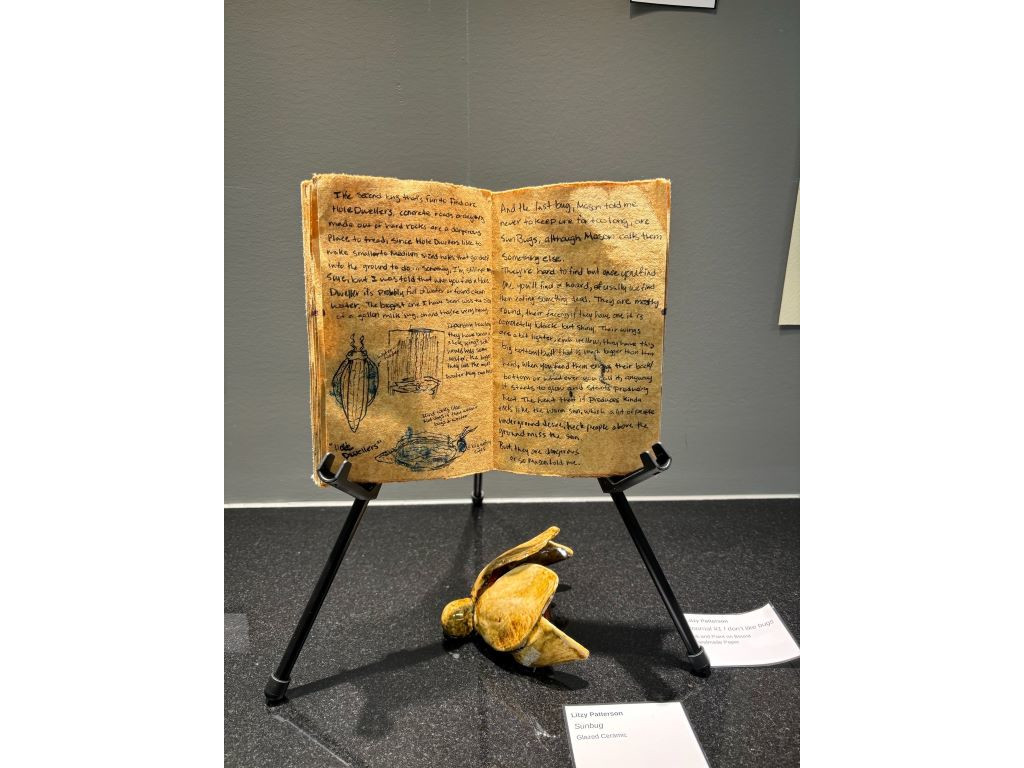 The second bug that's fun to find are
Hole Dwellers, concrete roads or anything
made out of hard rocks are a dangerous
place to tread, since Hole Dwellers like to
make smaller to medium sized holes that go deep
into the ground to do in something, I'm still not
sure, but I was told that when you find a Hole
Dweller its probably full of water or found clean
water. The biggest one I have seen was the size
of a gallon milk jug, and they're very heavy
they have
"Hole
Dwellers"
And the last bug, Mason told me
never to keep one for too long, are
Sun Bugs, although Mason calls them
something else.
They're hard to find but once you find
one, you'll find a hoard, usually we find
them eating something dead. They are mostly
round, their faces if they have one it is
completely black but shiny. Their wings
are a bit lighter, yellow, they have this
big bottom that is much bigger than their
head, when you feed them their back/
bottom or whatever you call it, anyway
it starts to glow and starts producing
heat. The heat that it produces kinda
feels like the warm sun, which a lot of people
underground desire, heck people above the
ground miss the sun.
But, they are dangerous
or so Mason told me.
Litzy Patterson
Journal #1 I don't like bugs
and Paint on Board
Handmade Paper
Litzy Patterson
Sunbug
Glazed Ceramic